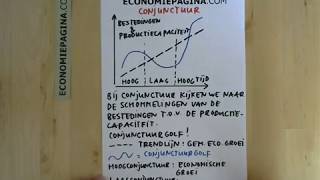 ECONOMIEPAGINA.COM
ECONOMIEPAGINA.COM
CONJUNCTUUR
BESTEDINGEN
& PRODUCTIECAPACITEIT
HOOG | LAAG | HOOG TIJD
BIJ CONJUNCTUUR KIJKEN WE NAAR
DE SCHOMMELINGEN VAN DE
BESTEDINGEN T.O.V. DE PRODUCTIE-
CAPACITEIT.
CONJUNCTUURGOLF!
TRENDLIJN: GEM. ECO. GROEI
= CONJUNCTUURGOLF
HOOGCONJUNCTUUR: ECONOMISCHE
GROEI